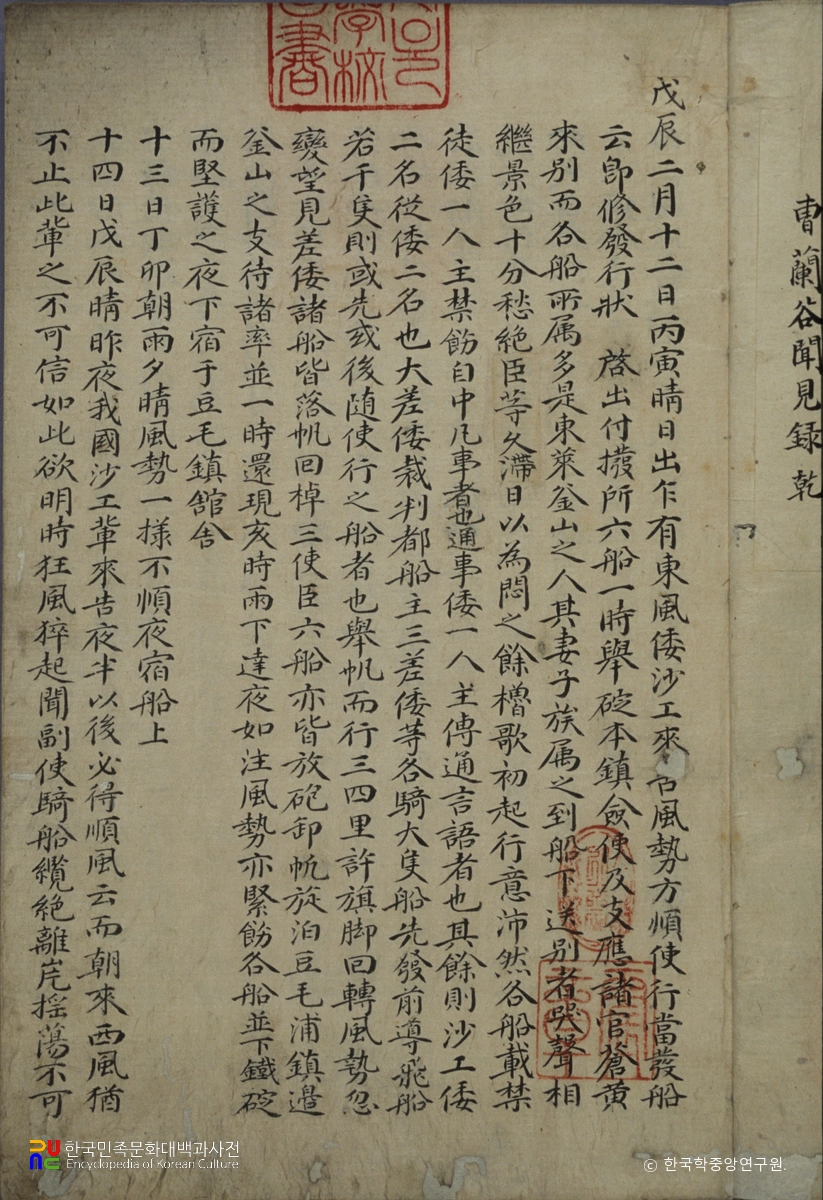 曺蘭谷聞見録 乾
戊辰二月十二日丙寅晴日出乍有東風倭沙工來告風勢方順使行當發船
云即修發行狀 啓出付撥所六船一時舉碇本鎮僉使及支應諸官蒼黃
來别而各船所属多是東萊釜山之人其妻子族属之到船下送别者哭聲相
繼景色十分愁絶臣等久滯日以為悶之餘櫓歌初起行意沛然各船載禁
徒倭一人主禁飭自中凡事者也通事倭一人主傳通言語者也其餘則沙工倭
二名從倭二名也大差倭裁判都船主三差倭等各騎大隻船先發前導飛船
若干隻則或先或後随使行之船者也舉帆而行三四里許旗脚回轉風勢忽
變望見差倭諸船皆落帆回棹三使臣六船亦皆放砲卸帆旋泊豆毛浦鎮邉
釜山之支待諸率並一時還現亥時雨下達夜如注風勢亦緊飭各船並下鐵碇
而堅護之夜下宿于豆毛鎮舘舍
十三日丁卯朝雨夕晴風勢一様不順夜宿船上
十四日戊辰晴昨夜我國沙工輩來告夜半以後必得順風云而朝來西風猶
不止此輩之不可信如此欲明時狂風猝起聞副使騎船纜絶離岸揺蕩不可
한국민족문화대백과사전
Encyclopedia of Korean Culture
© 한국학중앙연구원.